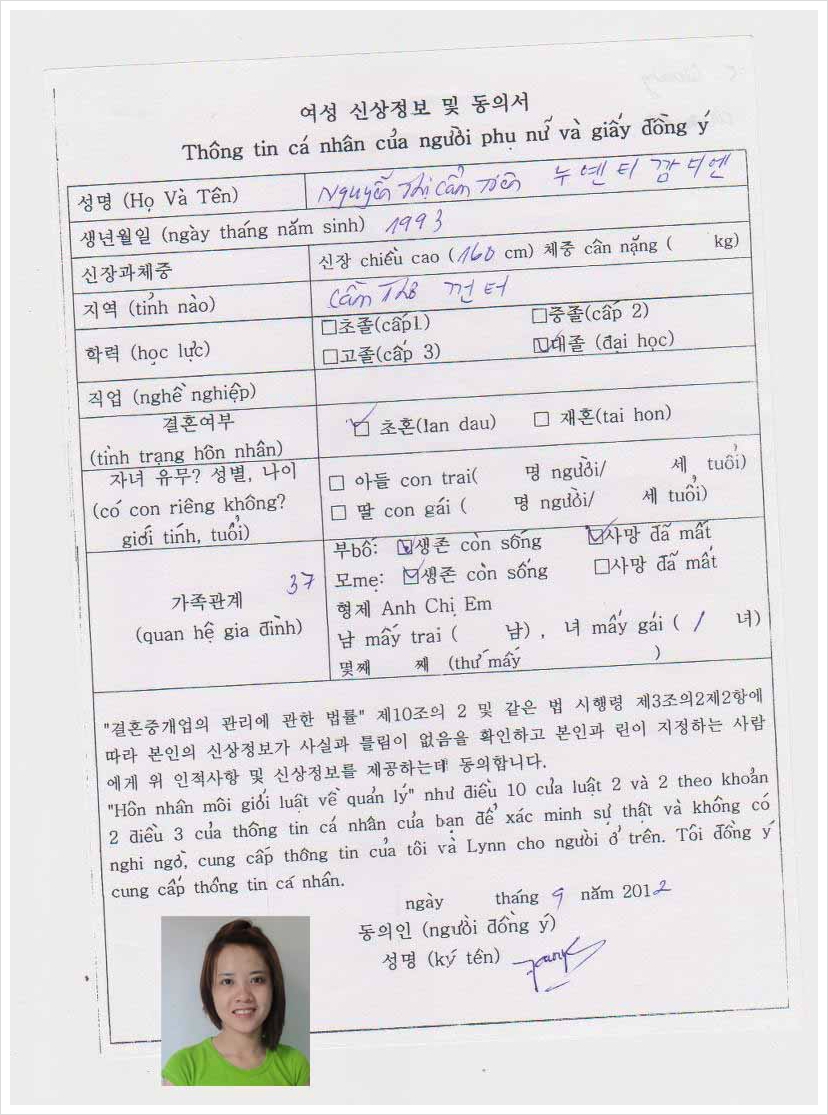 여성 신상정보 및 동의서
Thông tin cá nhân của người phụ nữ và giấy đồng ý
성명 (Họ Và Tên) Nguyễn Thị Cẩm Tiên 누엔 티 깜 티엔
생년월일 (ngày tháng năm sinh) 1993
신장과체중 신장 chiều cao (160 cm) 체중 cân nặng ( kg)
지역 (tỉnh nào) Cần Thơ 껀 터
학력 (học lực) □초졸(cấp1) □중졸(cấp 2)
□고졸(cấp 3) ☑대졸 (đại học)
직업 (nghề nghiệp)
결혼여부 (tình trạng hôn nhân) ☑ 초혼(lan dau) □ 재혼(tai hon)
자녀 유무? 성별, 나이 □ 아들 con trai( 명 người/ 세 tuổi)
(có con riêng không? giới tính, tuổi) □ 딸 con gái ( 명 người/ 세 tuổi)
부bố: ☑생존 còn sống ☑사망 đã mất
37 모mẹ: ☑생존 còn sống □사망 đã mất
가족관계 형제 Anh Chị Em
(quan hệ gia đình) 남 mấy trai ( 남) , 녀 mấy gái ( / 녀)
몇째 째 (thứ mấy )
"결혼중개업의 관리에 관한 법률" 제10조의 2 및 같은 법 시행령 제3조의2제2항에
따라 본인의 신상정보가 사실과 틀림이 없음을 확인하고 본인과 린이 지정하는 사람
에게 위 인적사항 및 신상정보를 제공하는데 동의합니다.
"Hôn nhân môi giới luật về quản lý" như điều 10 của luật 2 và 2 theo khoản
2 điều 3 của thông tin cá nhân của bạn để xác minh sự thật và không có
nghi ngờ, cung cấp thông tin của tôi và Lynn cho người ở trên. Tôi đồng ý
cung cấp thông tin cá nhân.
ngày tháng 9 năm 2012
동의인 (người đồng ý)
성명 (ký tên)